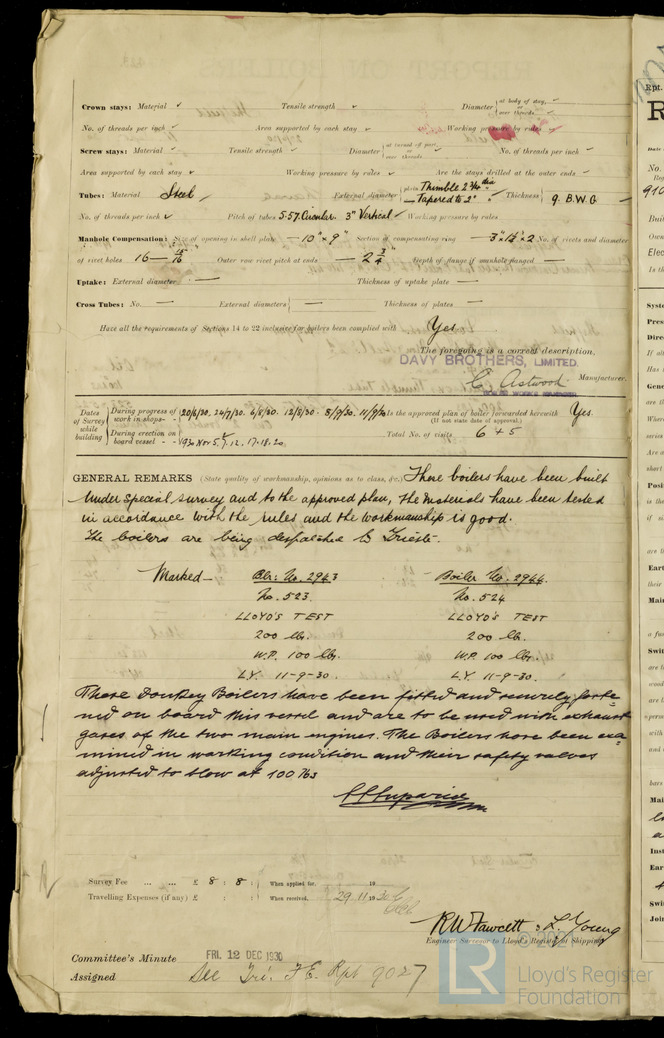 Crown stays: Material ✓ Tensile strength ✓ Diameter { at body of stay, ✓ or over threads ✓
No. of threads per inch ✓ Area supported by each stay ✓ Working pressure by rules ✓
Screw stays: Material ✓ Tensile strength ✓ Diameter { at turned off part, or over threads ✓ No. of threads per inch ✓
Area supported by each stay ✓ Working pressure by rules ✓ Are the stays drilled at the outer ends ✓
Tubes: Material Steel ✓ External diameter { plain Thimble 2¾" dia Tapered to 2" ✓ Thickness { 9. B.W.G
No. of threads per inch ✓ Pitch of tubes 5.57 Circular. 3" Vertical ✓ Working pressure by rules
Manhole Compensation: Size of opening in shell plate — 10" × 9" Section of compensating ring — No. of rivets and diameter
of rivet holes 16 — 15/16" Outer row rivet pitch at ends — 2¾" Depth of flange if manhole flanged —
Uptake: External diameter — Thickness of uptake plate —
Cross Tubes: No. — External diameters { — Thickness of plates —
Have all the requirements of Sections 14 to 22 inclusive for boilers been complied with Yes.
The foregoing is a correct description,
DAVY BROTHERS, LIMITED.
C. Astwood Manufacturer.
Dates of Survey while building { During progress of work in shops - - 20/6/30. 24/7/30. 6/8/30. 12/8/30. 5/9/30. 11/9/30 Is the approved plan of boiler forwarded herewith Yes.
(If not state date of approval.)
During erection on board vessel - - 1930 Nov 5. 7. 12. 17. 18. 20. Total No. of visits 6 + 5
GENERAL REMARKS (State quality of workmanship, opinions as to class, &c.) These boilers have been built
under special survey and to the approved plan, the materials have been tested
in accordance with the rules and the workmanship is good.
The boilers are being despatched to Trieste.
Marked — Blr: No. 2943 Boiler No. 2944.
No. 523. No. 524
LLOYD'S TEST LLOYD'S TEST
200 lb. 200 lb.
W.P. 100 lbs. W.P. 100 lbs.
L.Y. 11-9-30. L.Y. 11-9-30.
These Donkey Boilers have been fitted and securely faste=
ned on board this vessel and are to be used with exhaust
gases of the two main engines. The Boilers have been exa=
mined in working condition and their safety valves
adjusted to blow at 100 lbs
Survey Fee ... ... £ 8 : 8 : } When applied for, 19
Travelling Expenses (if any) £ : : } When received, 29.11.1930
R W Fawcett : L. Young
Engineer Surveyor to Lloyd's Register of Shipping.
Committee's Minute FRI. 12 DEC 1930
Assigned See Tri. F.E. Rpt 9027
LR
Lloyd's Register
Foundation